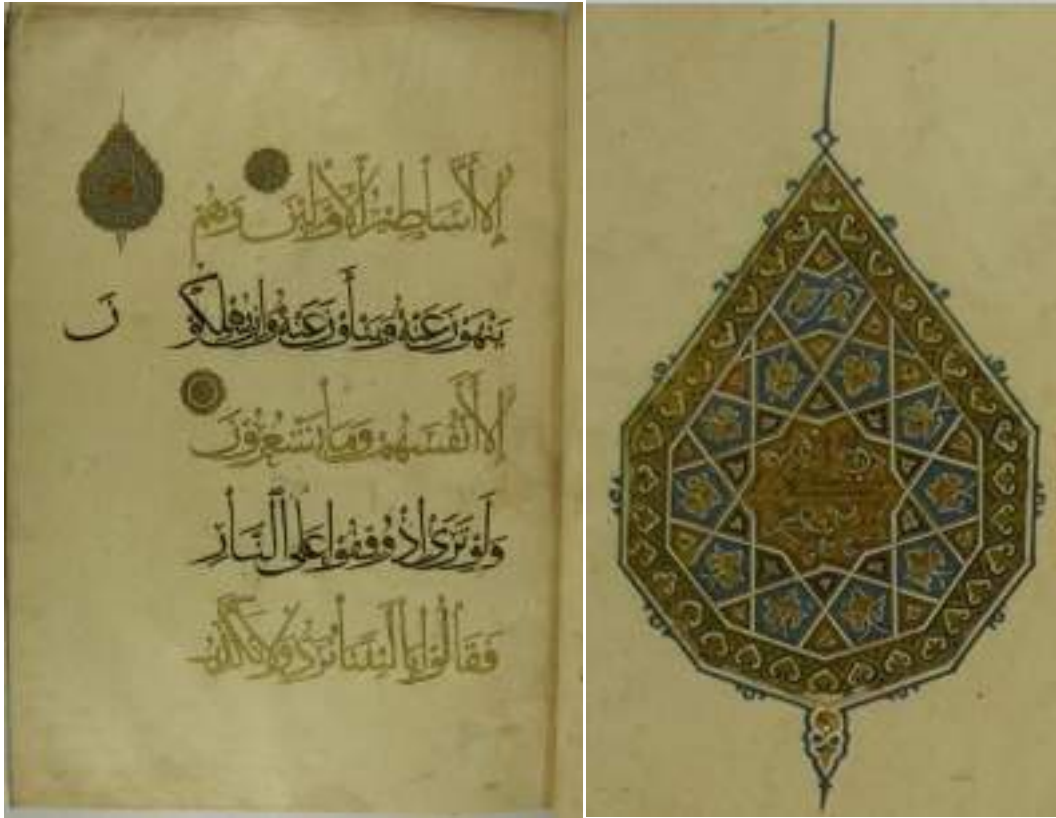 إِلَّا أَسَاطِيرُ الْأَوَّلِينَ وَهُمْ
يَنْهَوْنَ عَنْهُ وَيَنْأَوْنَ عَنْهُ وَإِنْ يُهْلِكُو نَ
إِلَّا أَنْفُسَهُمْ وَمَا يَشْعُرُونَ
وَلَوْ تَرَى إِذْ وُقِفُوا عَلَى النَّارِ
فَقَالُوا يَا لَيْتَنَا نُرَدُّ وَلَا نُكَذِّبَ